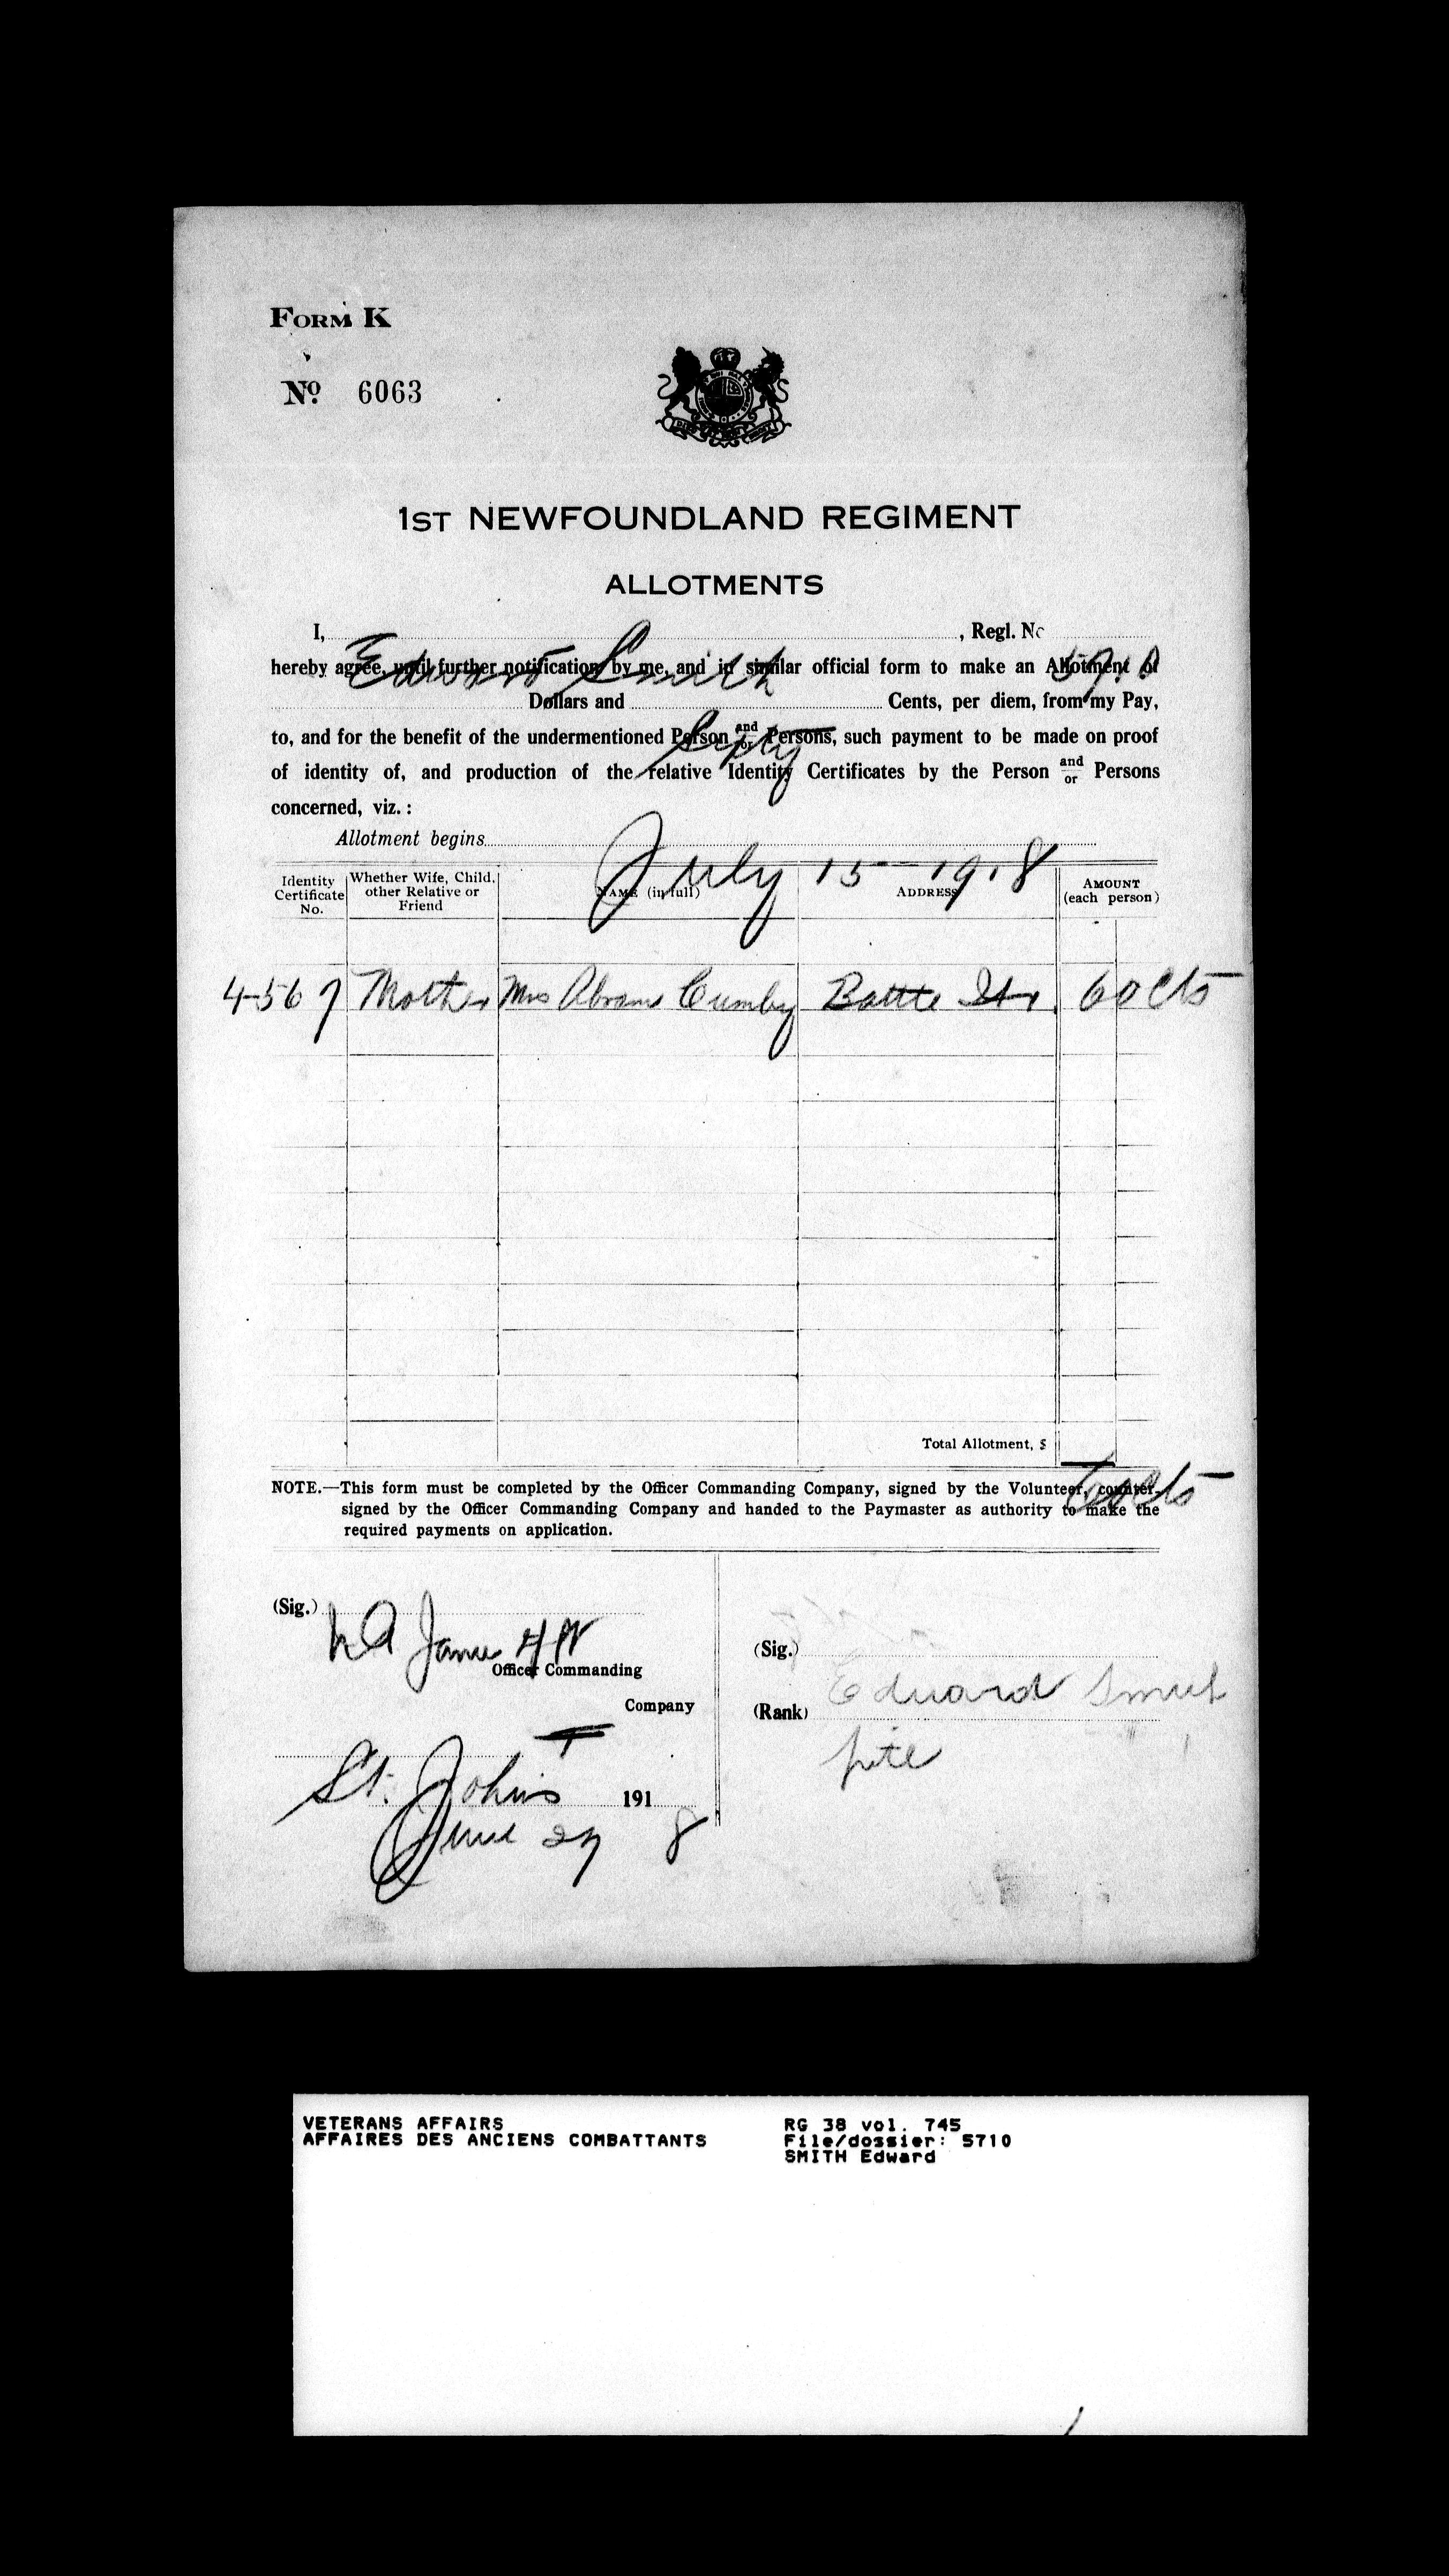 FORM K
No. 6063
1ST NEWFOUNDLAND REGIMENT
ALLOTMENTS
I, Edward Smith, Regl. No 5710
hereby agree, until further notification by me, and in similar official form to make an Allotment of
Dollars and Sixty Cents, per diem, from my Pay,
to, and for the benefit of the undermentioned Person and/or Persons, such payment to be made on proof
of identity of, and production of the relative Identity Certificates by the Person and/or Persons
concerned, viz. :
Allotment begins July 15 - 1918
Identity Certificate No. Whether Wife, Child, other Relative or Friend NAME (in full) ADDRESS AMOUNT (each person)
4567 Mother Mrs Abram Cumby Battle Hr. 60 Cts
Total Allotment, $ 60 Cts
NOTE.—This form must be completed by the Officer Commanding Company, signed by the Volunteer, counter-
signed by the Officer Commanding Company and handed to the Paymaster as authority to make the
required payments on application.
(Sig.)
Officer Commanding
F Company
St. John's
June 27 1918
(Sig.) Edward Smith
(Rank) pite
VETERANS AFFAIRS
AFFAIRES DES ANCIENS COMBATTANTS
RG 38 vol. 745
File/dossier: 5710
SMITH Edward